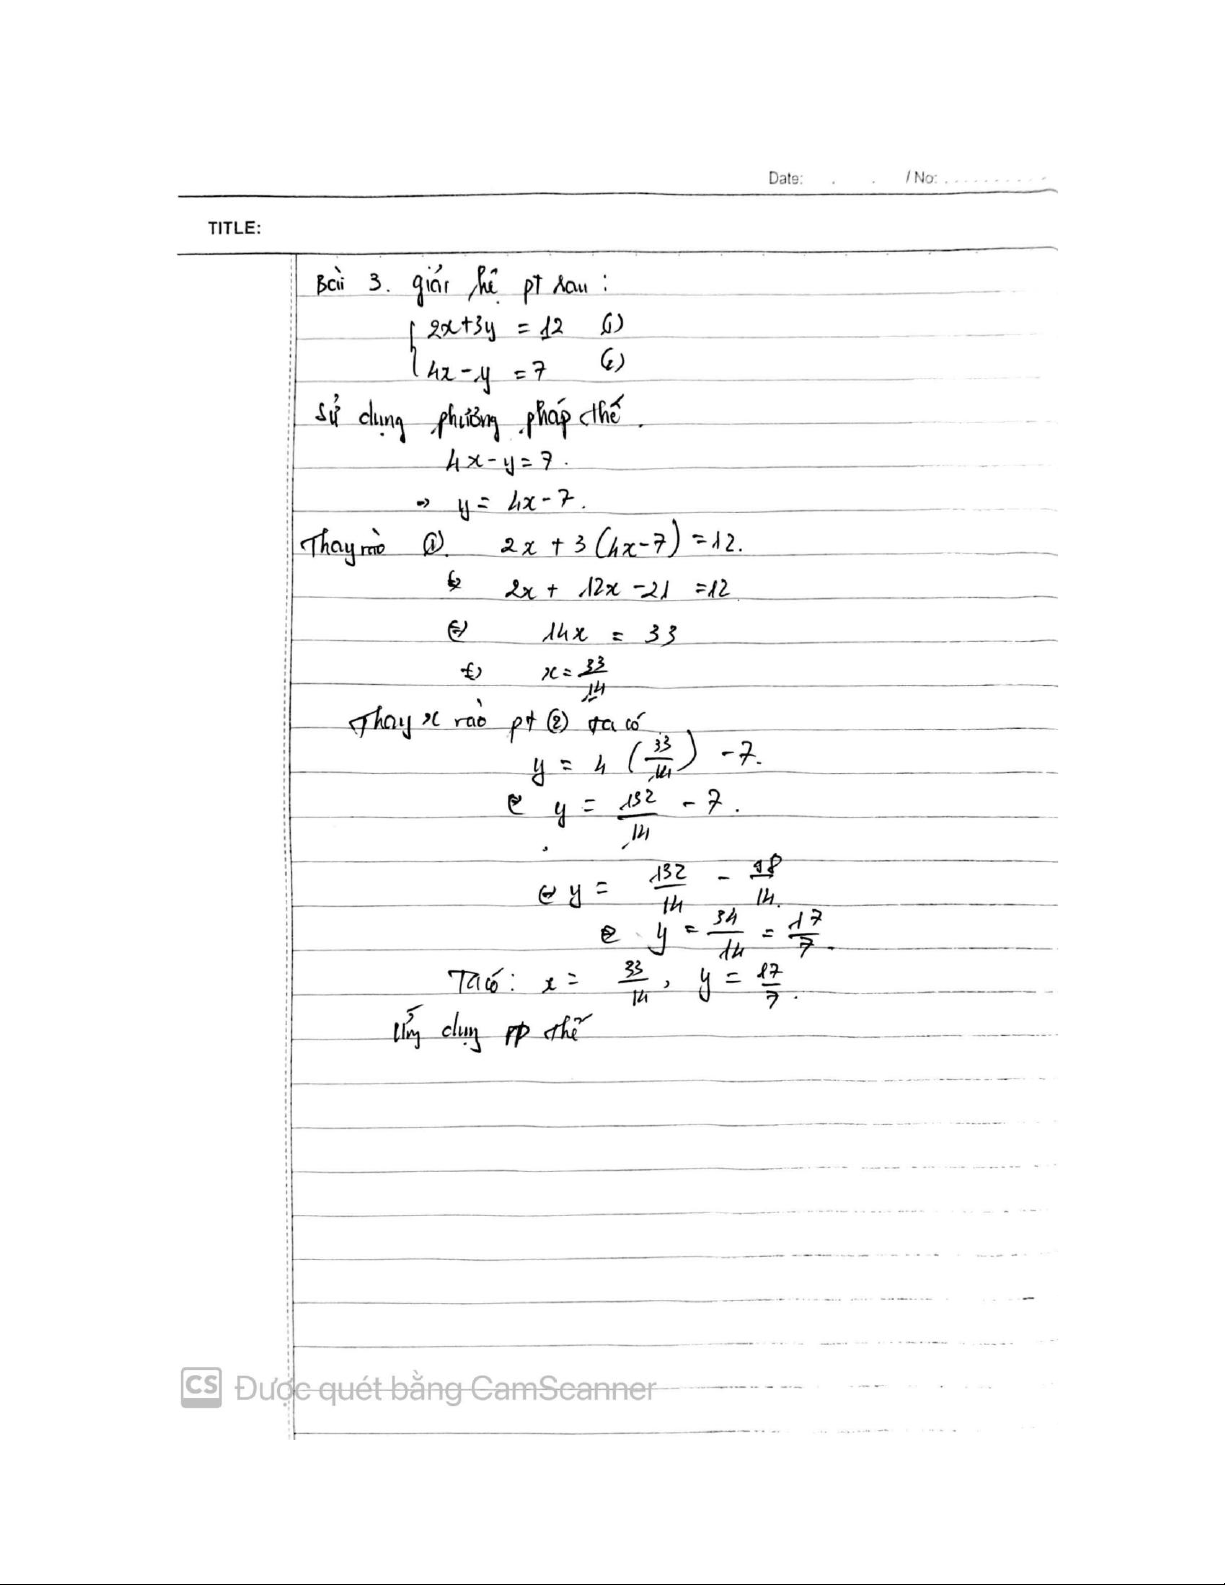 Date: . . / No: ..........
TITLE:
Bài 3. giải hệ pt sau :
2x+3y = 12 (1)
4x-y = 7 (2)
Sử dụng phương pháp thế.
4x-y=7.
=> y = 4x-7.
Thay vào (1) 2x + 3(4x-7) = 12.
<=> 2x + 12x -21 = 12
<=> 14x = 33
<=> x = 33/14
Thay x vào pt (2) ta có
y = 4 (33/14) - 7.
<=> y = 132/14 - 7.
<=> y = 132/14 - 98/14.
<=> y = 34/14 = 17/7.
Ta có : x = 33/14, y = 17/7.
dụng pp thế
CS Được quét bằng CamScanner